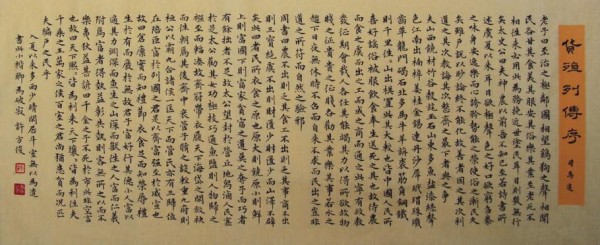 貨殖列傳序
司馬遷
老子曰至治之極鄰國相望鷄狗之聲相聞
民各甘其食美其服安其俗樂其業至老死不
相往來必用此為務輓近世塗民耳目則幾無行
矣太史公曰夫神農以前吾不知已至若詩書所
述虞夏以來耳目欲極聲色之好口欲窮芻豢
之味身安逸樂而心誇矜勢能之榮使俗之漸民久
矣雖戶說以眇論終不能化故善者因之其次利
道之其次教誨之其次整齊之最下者與之爭
夫山西饒材竹穀纑旄玉石山東多魚鹽漆絲聲
色江南出楠梓薑桂金錫連丹沙犀瑇瑁珠璣
齒革龍門碣石北多馬牛羊旃裘筋角銅鐵
則千里往往山出棋置此其大較也皆中國人民所
喜好謠俗被服飲食奉生送死之具也故待農
而食之虞而出之工而成之商而通之此寧有政教
發徵期會哉人各任其能竭其力以得所欲故物
賤之徵貴貴之徵賤各勸其業樂其事若水之
趨下日夜無休時不召而自來不求而民出之豈非
道之所符而自然之驗邪
周書曰農不出則乏其食工不出則乏其事商不出
則三寶絕虞不出則財匱少財匱少而山澤不辟
矣此四者民所衣食之原也原大則饒原小則鮮
上則富國下則富家貧富之道莫之奪予而巧者
有餘拙者不足故太公望封於營丘地瀉鹵人民寡
於是太公勸其女功極技巧通魚鹽則人物歸之
繦至而輻湊故齊冠帶衣履天下海岱之間斂袂
而往朝焉其後齊中衰管子修之設輕重九府則
桓公以霸九合諸侯一匡天下而管氏亦有三歸位
在陪臣富於列國之君是以齊富強至於威宣也
故曰倉廩實而知禮節衣食足而知榮辱禮
生於有而廢於無故君子富好行其德小人富以
適其力淵深而魚生之山深而獸往之人富而仁義
附焉富者得勢益彰失勢則客無所之以而不
樂夷狄益甚諺曰千金之子不死於市此非空言
也故曰天下熙熙皆為利來天下壤壤皆為利往夫
千乘之王萬家之侯百室之君尚猶患貧而況匹
夫編戶之民乎
入夏以來多雨少晴閒居斗室無以為遣
書此小楷 破寂 許方俊